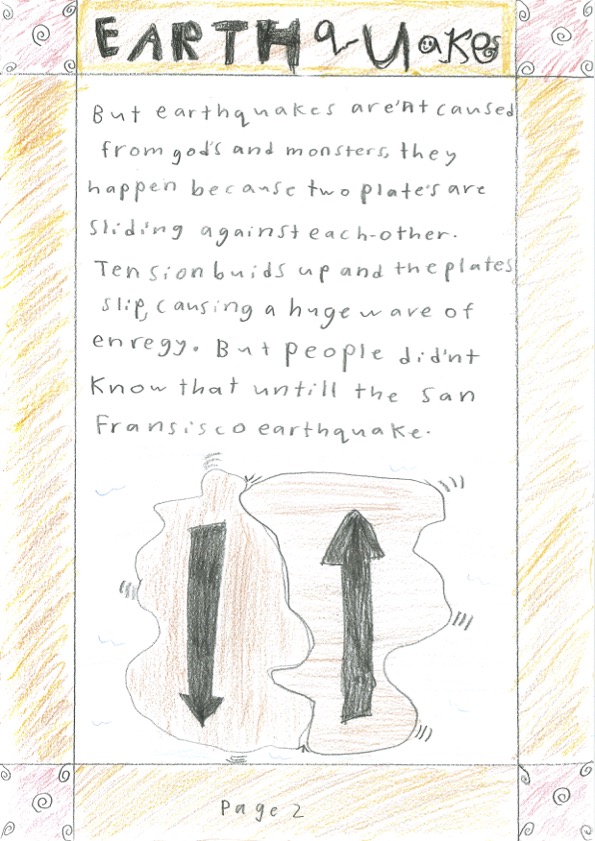 EARTHquakes
But earthquakes are'nt caused
from god's and monsters, they
happen because two plate's are
sliding against each-other.
Tension buids up and the plates
slip, causing a huge wave of
enregy. But people did'nt
Know that untill the san
Fransisco earthquake.
Page 2